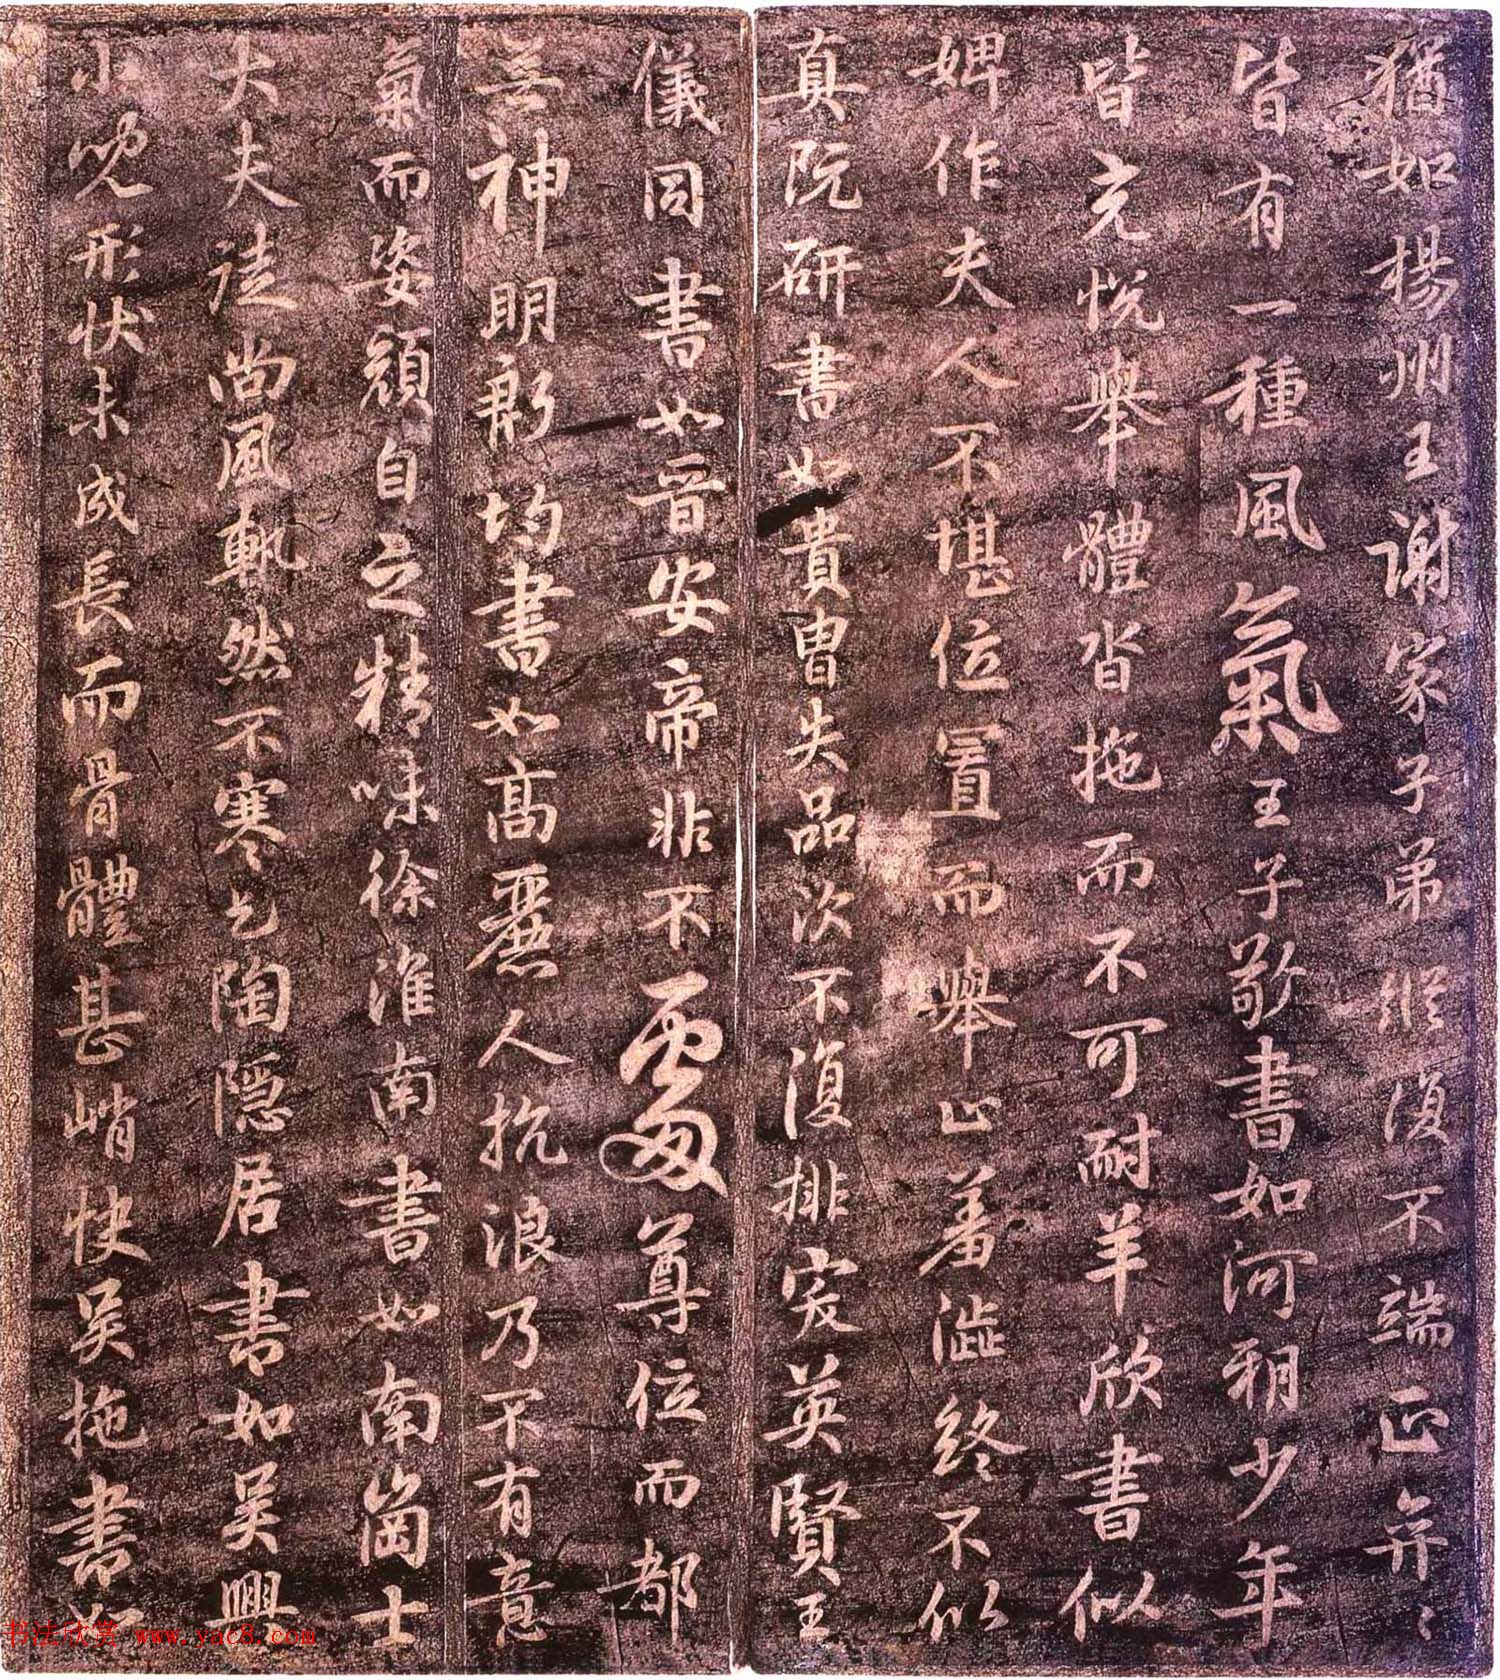 猶如楊州王謝家子弟縱復不端正弈弈
皆有一種風氣王子敬書如河朔少年
皆充悅舉體沓拖而不可耐羊欣書似
婢作夫人不堪位置而舉止羞澀終不似
真阮研書如貴冑失品次不復排突英賢王
儀同書如晉安帝非不處尊位而都
無神明𢈔均書如高麗人抗浪乃不有意
氣而姿顏自乏精味徐淮南書如南崗士
大夫徒尚風軌然不寒乞陶隱居書如吳興
小兒形狀未成長而骨體甚峭快吳拖書如
书法欣赏 www.yac8.com